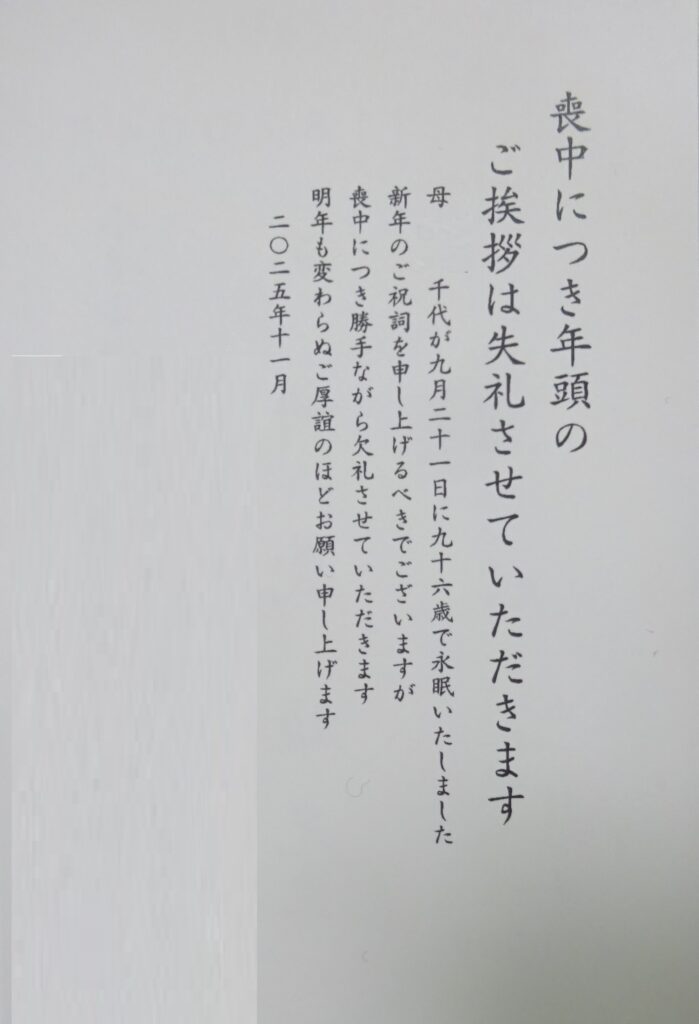 喪中につき年頭の
ご挨拶は失礼させていただきます
母　千代が九月二十一日に九十六歳で永眠いたしました
新年のご祝詞を申し上げるべきでございますが
喪中につき勝手ながら欠礼させていただきます
明年も変わらぬご厚誼のほどお願い申し上げます
二〇二五年十一月